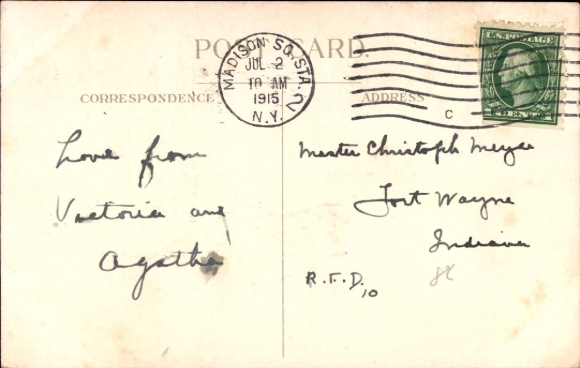 POST CARD.
MADISON SQ. STA. 2
JUL 2
10 AM
1915
N.Y.
C
U.S. POSTAGE
CORRESPONDENCE
ADDRESS
Love from
Victoria and
Agatha
Master Christoph Meyer
Fort Wayne
Indiana
R.F.D. 10